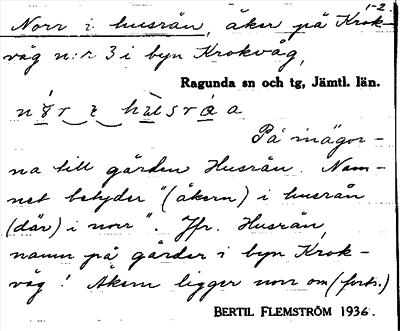 1-2
Norr i husrån, åker på Krok-
våg n:r 3 i byn Krokvåg,
Ragunda sn och tg, Jämtl. län.
På inägor-
na till gården Husrån. Nam-
net betyder "(åkern) i husrån
(där) i norr". Jfr. Husrån,
namn på gårder i byn Krok-
våg! Åkern ligger norr om (forts.)
BERTIL FLEMSTRÖM 1936.